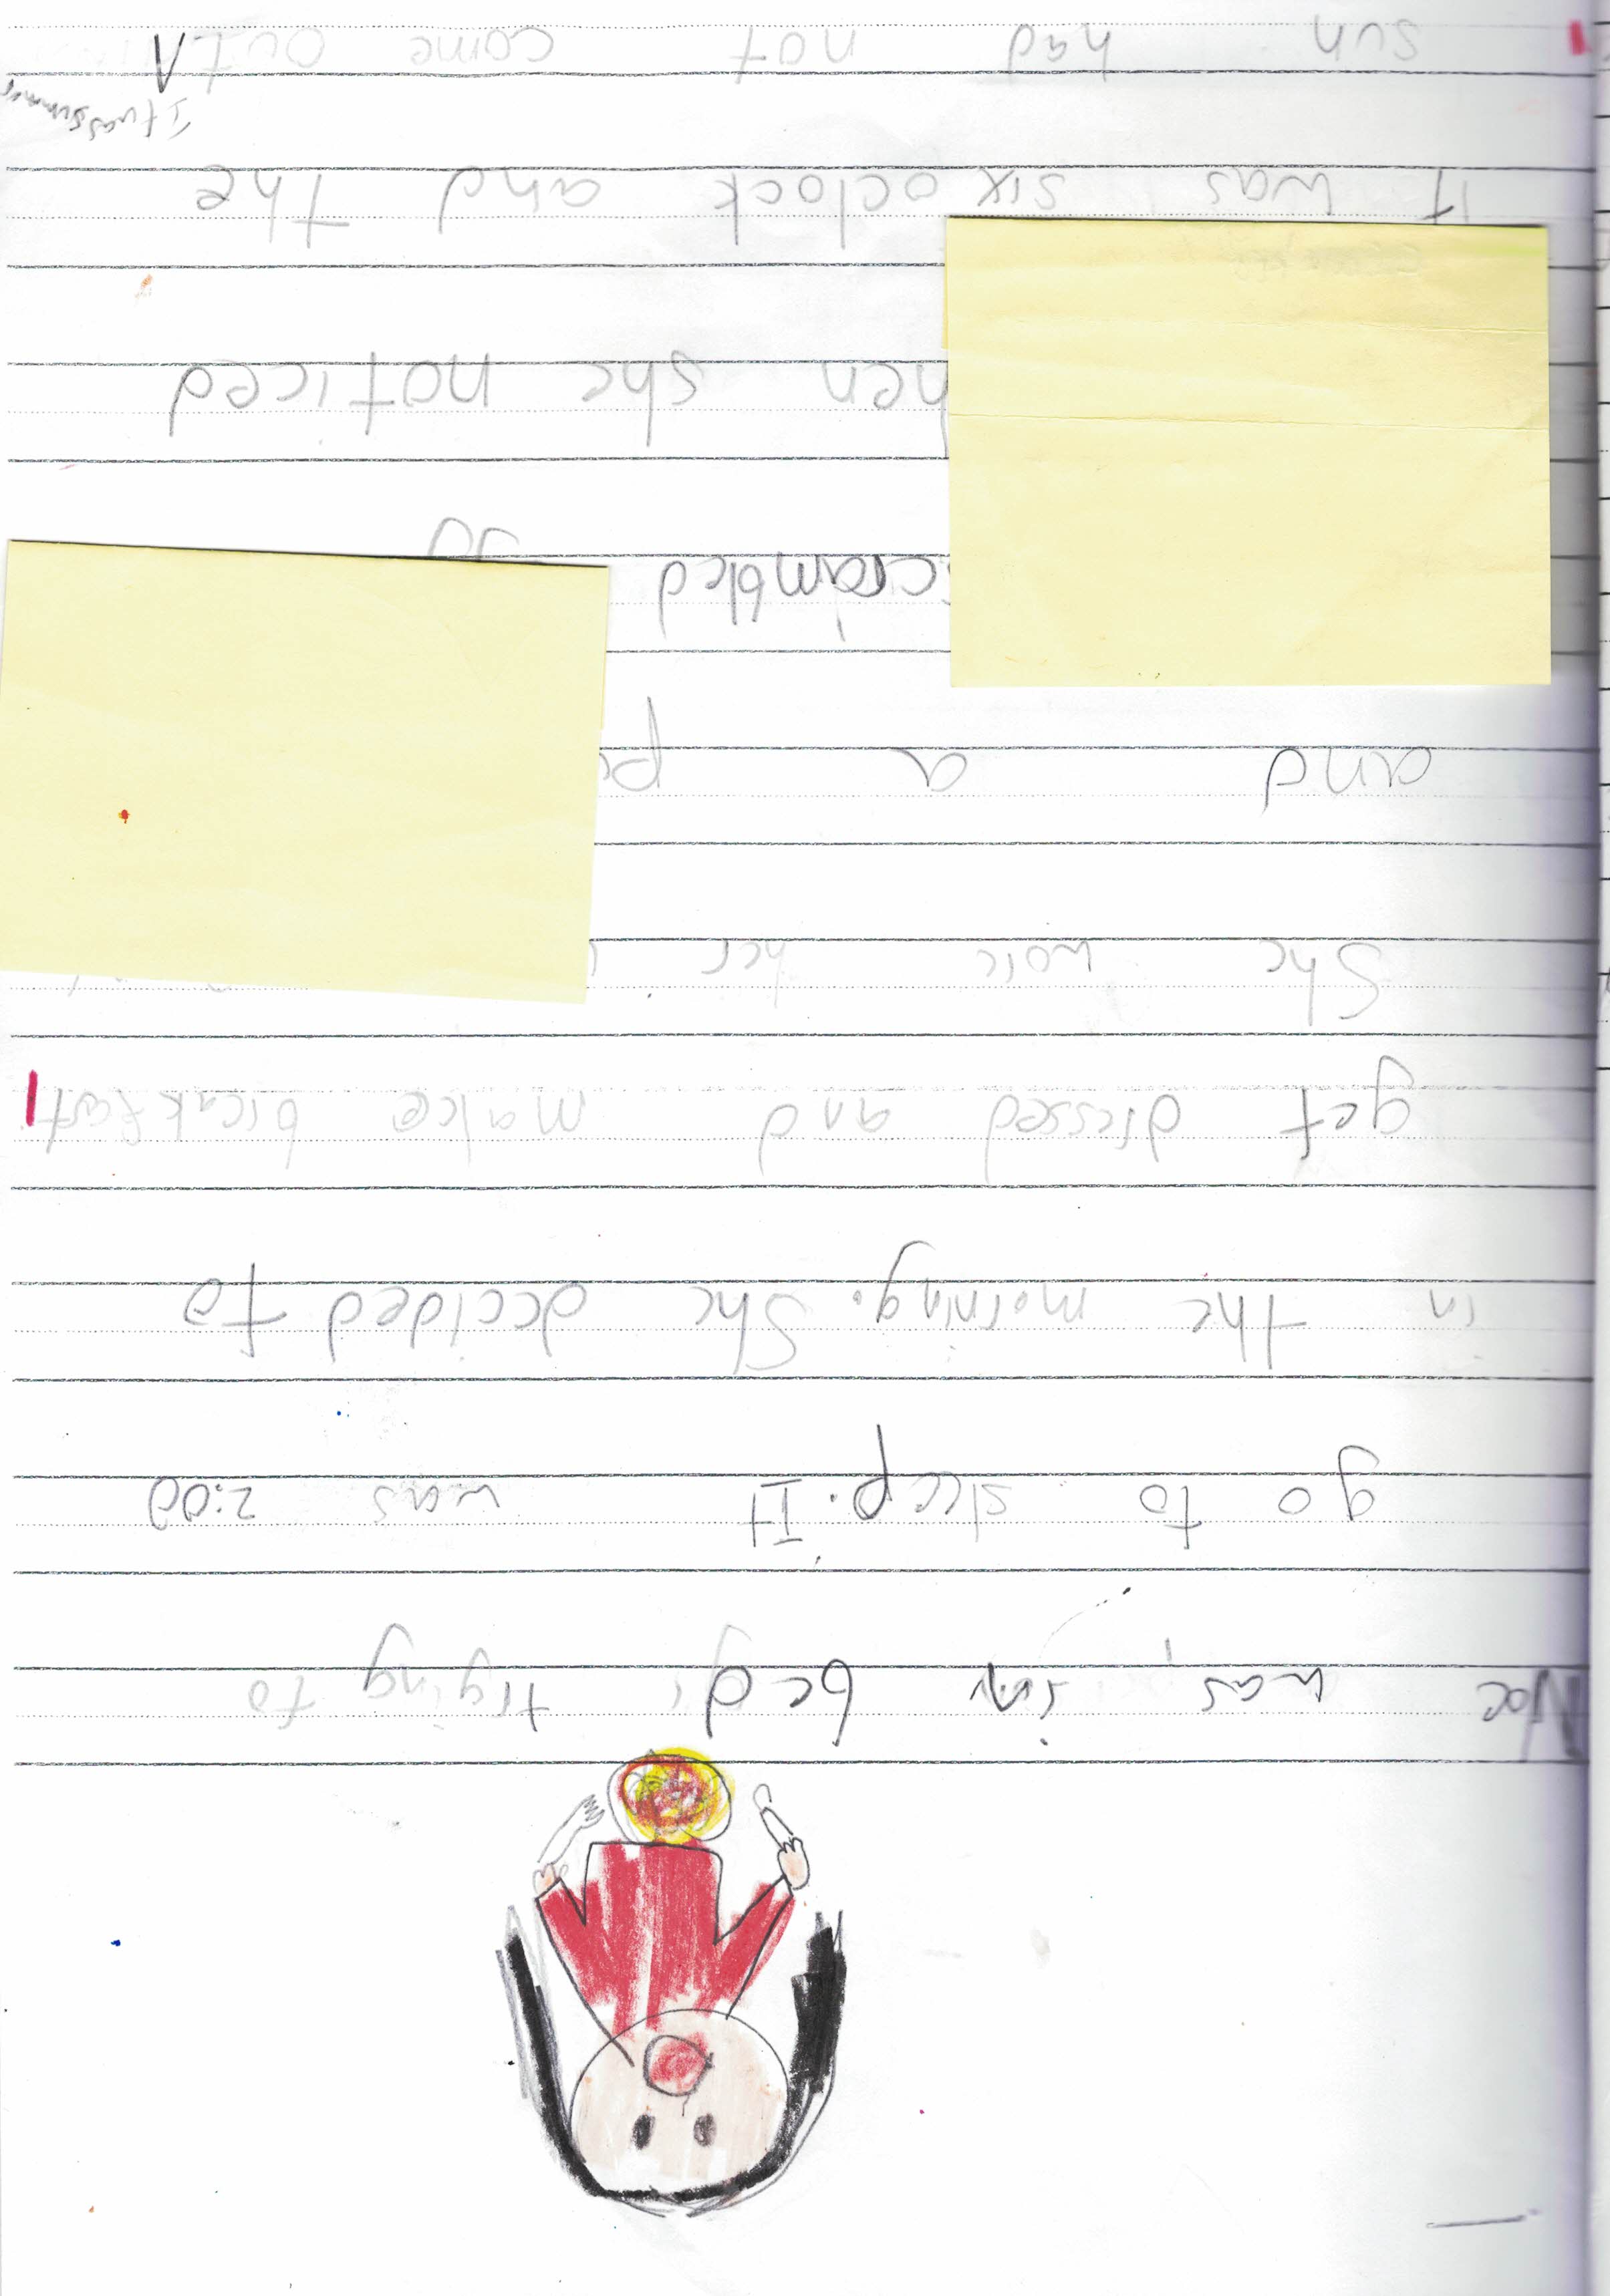 Noe was in bed trying to
go to sleep. It was 2:00
in the morning. She decided to
get dressed and make breakfast
She wore her
and a
scrambled
she noticed
It was six oclock and the
It was summer
sun had not come out ^